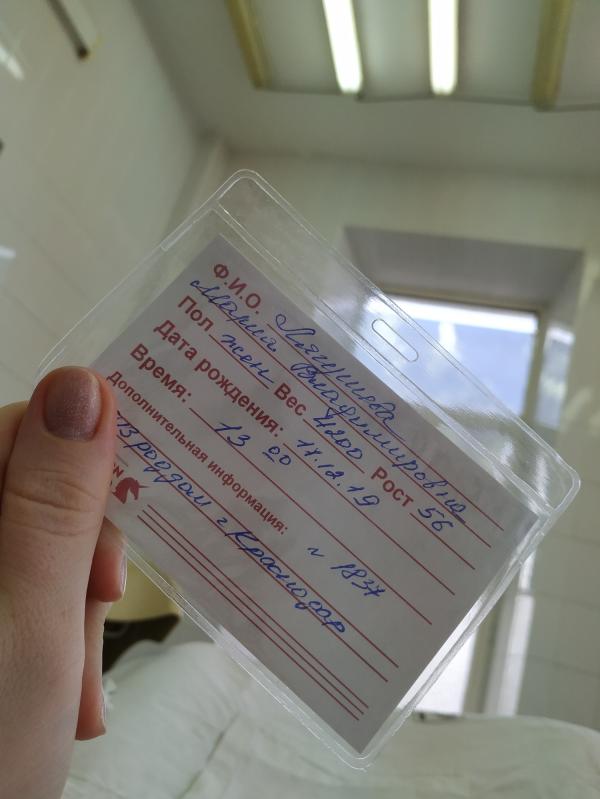 Ф.И.О. Лягушева
Мария Владимировна
Пол жен Вес 4200 Рост 56
Дата рождения: 17.12.19
Время: 13 00
Дополнительная информация: ~ 1837
Роддом г Краснодар